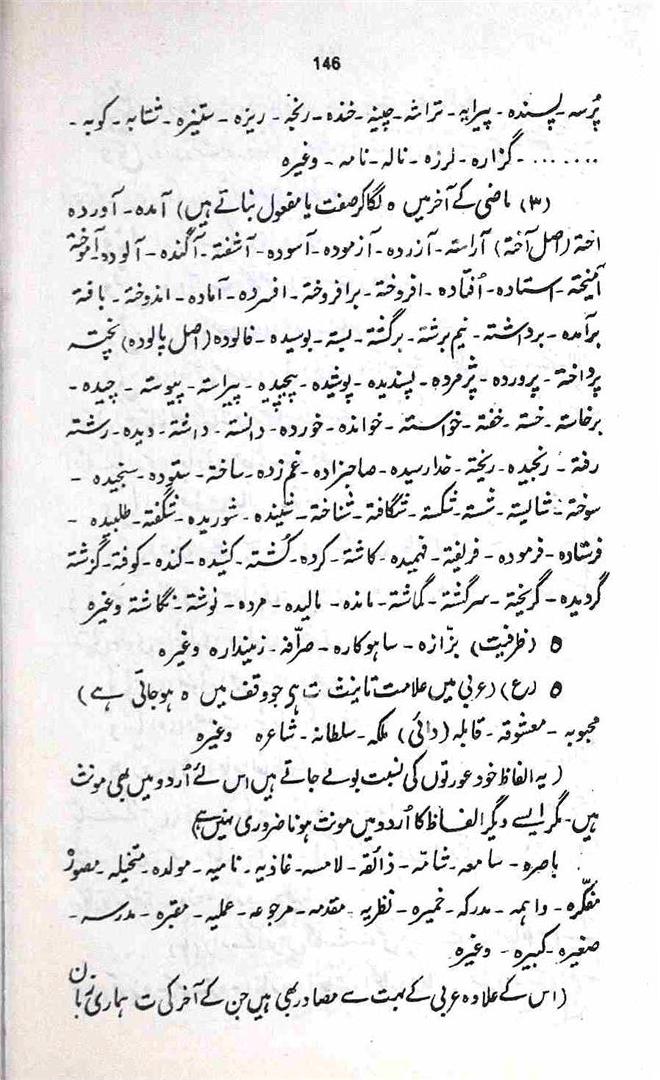 146
پُرسہ۔ پسندہ۔ پیرایہ۔ تراشہ۔ چینہ۔ خندہ۔ رنجہ۔ ریزہ۔ ستیزہ۔ شتابہ۔ کوبہ۔
....... گزارہ۔ لرزہ۔ نالہ۔ نامہ۔ وغیرہ
(۳) ماضی کے آخر میں ہ لگا کر صفت یا مفعول بناتے ہیں) آمدہ۔ آوردہ
اختہ (اصل آختہ) آراستہ۔ آزردہ۔ آزمودہ۔ آسودہ۔ آشفتہ۔ آگندہ۔ آلودہ۔ آموختہ
آمیختہ۔ استادہ۔ اُفتادہ۔ افروختہ۔ برافروختہ۔ افسردہ۔ آمادہ۔ اندوختہ۔ بافتہ
برآمدہ۔ برداشتہ۔ نیم برشتہ۔ برگشتہ۔ بستہ۔ بوسیدہ۔ فالودہ (اصل پالودہ) پختہ
پرداختہ۔ پروردہ۔ پژمردہ۔ پسندیدہ۔ پوشیدہ۔ پیچیدہ۔ پیراستہ۔ پیوستہ۔ چیدہ۔
برخاستہ۔ خستہ۔ خفتہ۔ خواستہ۔ خواندہ۔ خوردہ۔ دانستہ۔ داشتہ۔ دیدہ۔ رشتہ
رفتہ۔ رنجیدہ۔ ریختہ۔ خدا رسیدہ۔ صاحبزادہ۔ غم زدہ۔ ساختہ۔ ستودہ۔ سنجیدہ۔
سوختہ۔ شایستہ۔ شستہ۔ شکستہ۔ شگافتہ۔ شناختہ۔ شنیدہ۔ شوریدہ۔ شگفتہ۔ طلبیدہ۔
فرستادہ۔ فرمودہ۔ فریفتہ۔ فہمیدہ۔ کاشتہ۔ کردہ۔ کُشتہ۔ کشیدہ۔ کندہ۔ کوفتہ۔ گزشتہ
گردیدہ۔ گریختہ۔ سرگشتہ۔ گماشتہ۔ ماندہ۔ مالیدہ۔ مردہ۔ نوشتہ۔ نگاشتہ وغیرہ
ہ (ظرفیت) بزّازہ۔ ساہوکارہ۔ صرّافہ۔ زمیندارہ وغیرہ
ہ (ع) (عربی میں علامت تانیث ت ہی جو وقف میں ہ ہو جاتی ہے)
محبوبہ۔ معشوقہ۔ قابلہ (دائی) ملکہ۔ سلطانہ۔ شاعرہ وغیرہ
(یہ الفاظ خود عورتوں کی نسبت بولے جاتے ہیں اس لئے اُردو میں بھی مونث
ہیں۔ مگر ایسے دیگر الفاظ کا اُردو میں مونث ہونا ضروری نہیں ہے)
باصرہ۔ سامعہ۔ شامّہ۔ ذائقہ۔ لامسہ۔ غاذیہ۔ نامیہ۔ مولدہ۔ متخیلہ۔ مصورہ
مفکّرہ۔ واہمہ۔ مدرکہ۔ خمیرہ۔ نظریہ۔ مقدمہ۔ مرجوعہ۔ عملیہ۔ مقبرہ۔ مدرسہ۔
صغیرہ۔ کبیرہ۔ وغیرہ
(اس کے علاوہ عربی کے بہت سے مصادر بھی ہیں جن کے آخر کی ت ہماری زبان